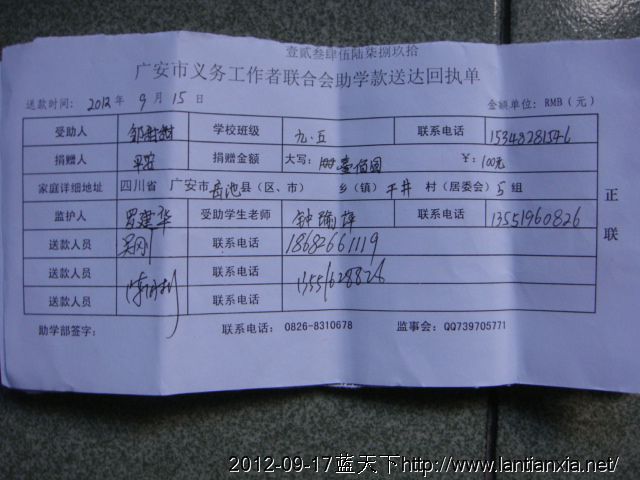 壹贰叁肆伍陆柒捌玖拾
广安市义务工作者联合会助学款送达回执单
送款时间: 2012年 9月 15日 金额单位: RMB (元)
受助人 学校班级 九.五 联系电话
捐赠人 平安 捐赠金额 大写: 壹佰圆 ¥: 100元
家庭详细地址 四川省 广安市岳池县(区、市) 乡(镇) 千井 村(居委会) 5 组
监护人 罗建华 受助学生老师 联系电话 13551960826
送款人员 吴刚 联系电话 18682661119
送款人员 联系电话
送款人员 联系电话
助学部签字: 联系电话: 0826-8310678 监事会: QQ739705771
正联
2012-09-17蓝天下http://www.lantianxia.net/